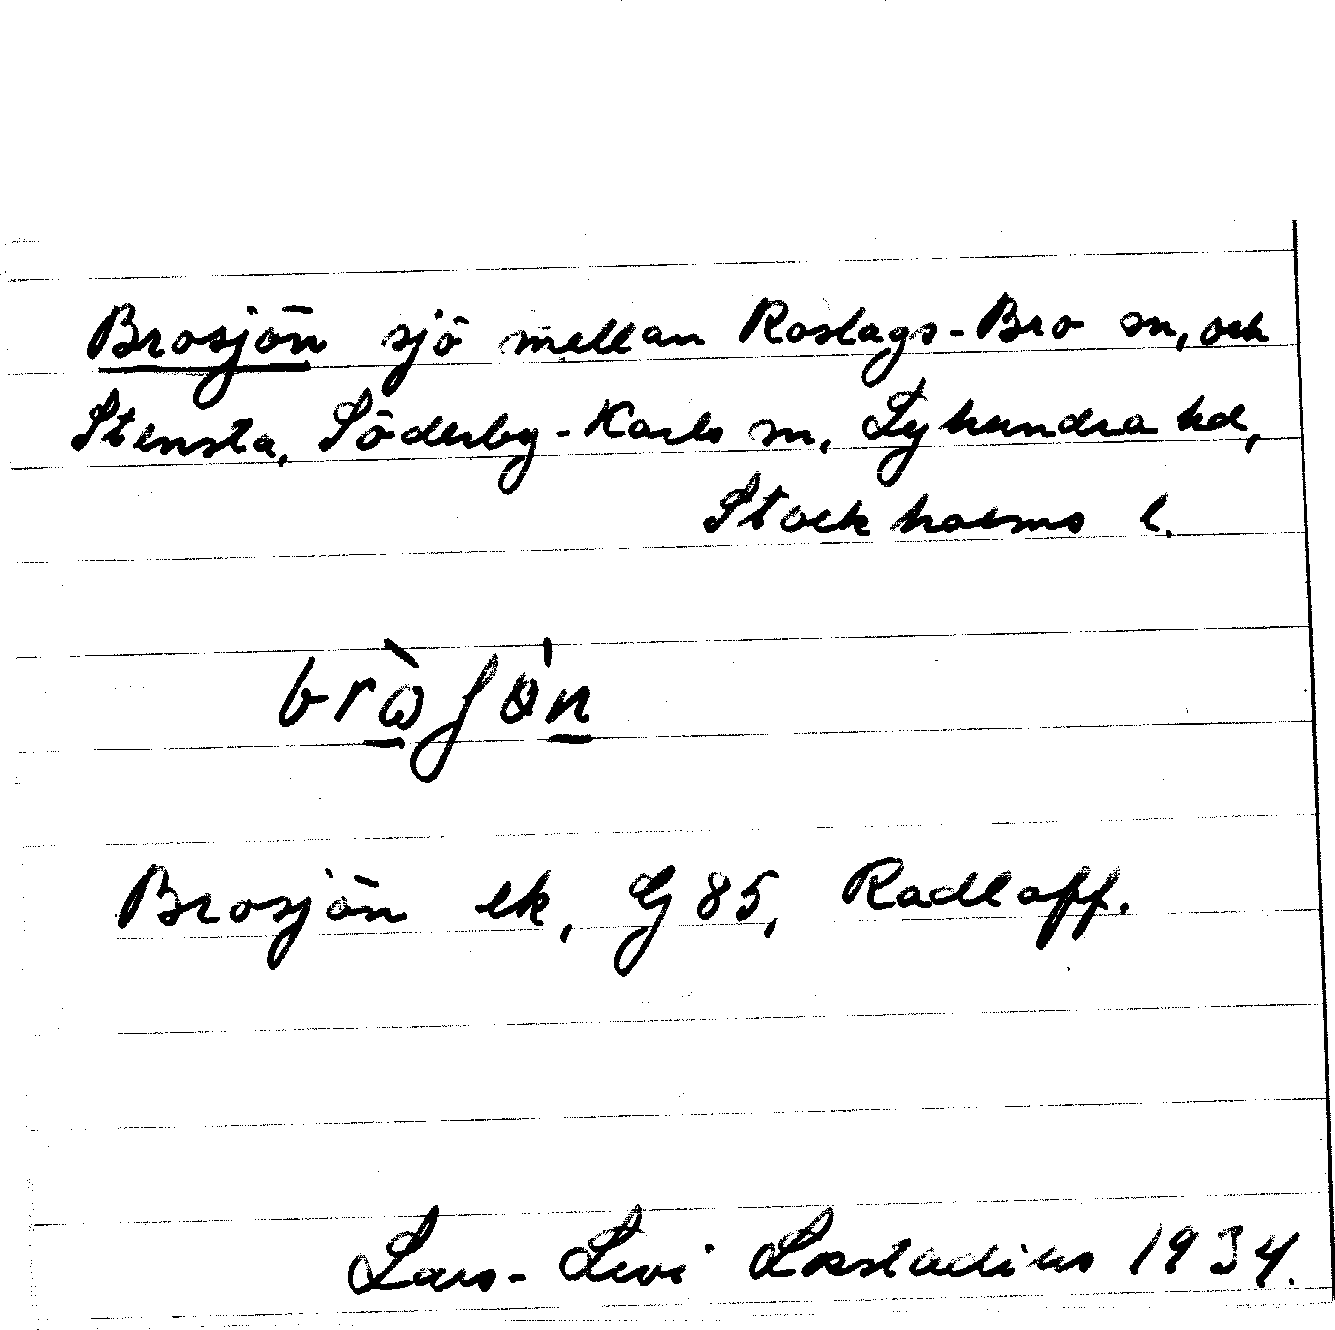 Brosjön sjö mellan Roslags-Bro sn, och
Stensta, Söderby-Karls sn, Lyhundra hd,
Stockholms l.
Brosjön ek, G 85, Radloff.
Lars-Levi Læstadius 1934.